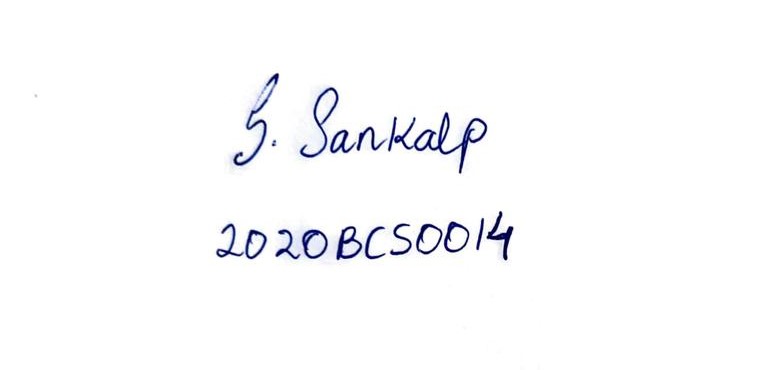 G. Sankalp
2020BCS0014